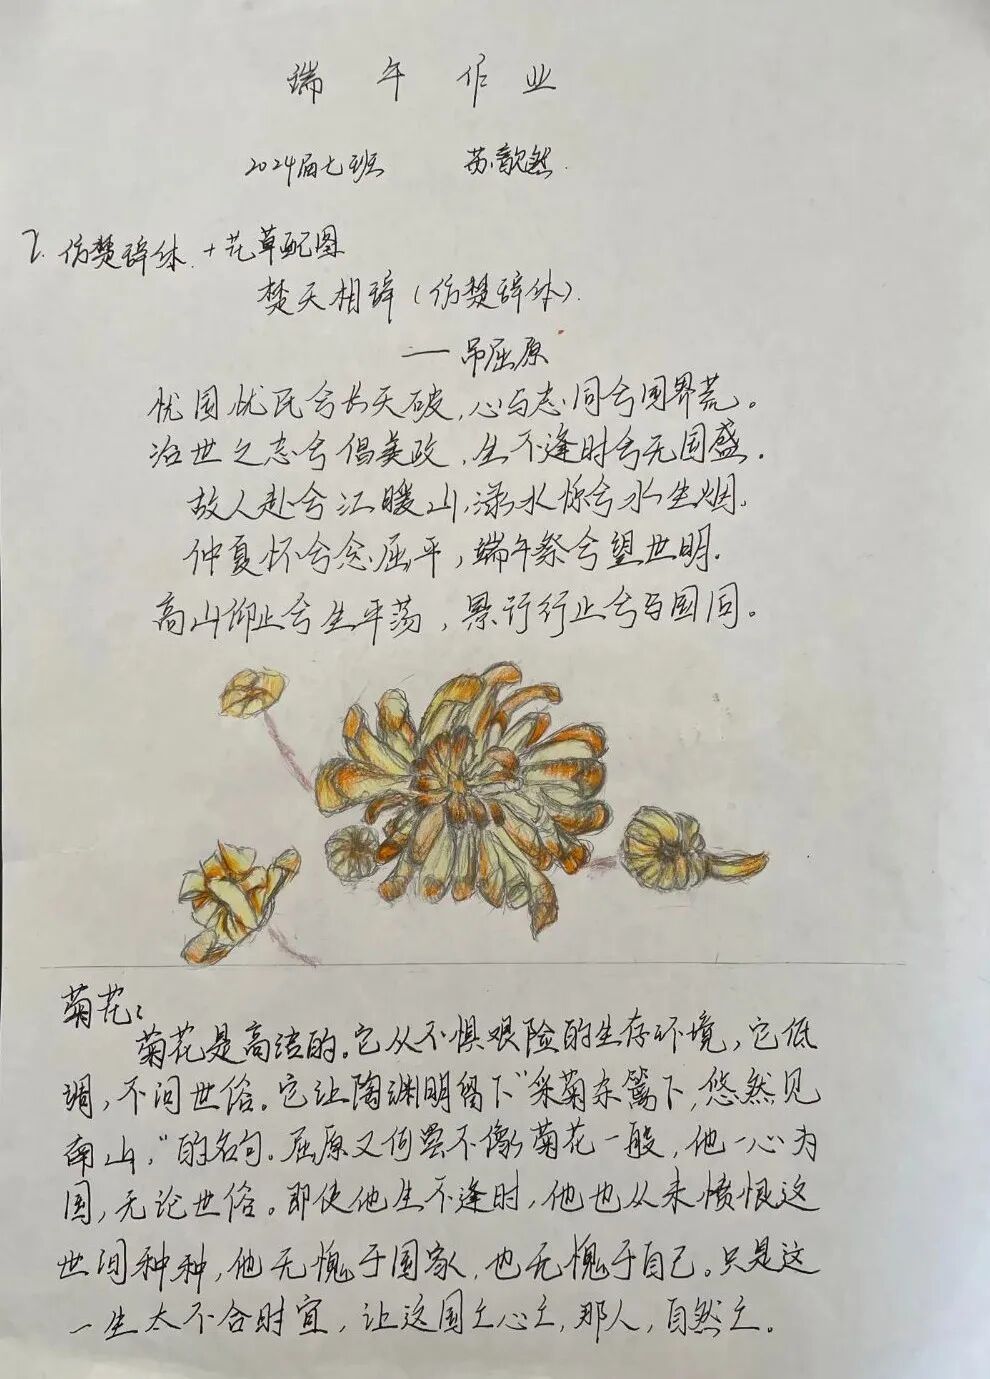 端午作业
2024届七班 苏歆然.
2. 仿楚辞体. + 花草配图
楚天相辞(仿楚辞体).
——吊屈原
忧国忧民兮长天破,心与志同兮国界荒。
治世之志兮倡美政,生不逢时兮无国盛.
故人赴兮江暖山,添水惊兮水生烟.
仲夏怀兮念屈平,端午祭兮望世明.
高山仰止兮生平荡,景行行止兮与国同。
菊花:
菊花是高洁的。它从不惧艰险的生存环境,它低
调,不问世俗。它让陶渊明留下“采菊东篱下,悠然见
南山,”的名句。屈原又何尝不像菊花一般,他一心为
国,无论世俗。即使他生不逢时,他也从未愤恨这
世间种种,他无愧于国家,也无愧于自己。只是这
一生太不合时宜,让这国亡心亡,那人,自然亡。